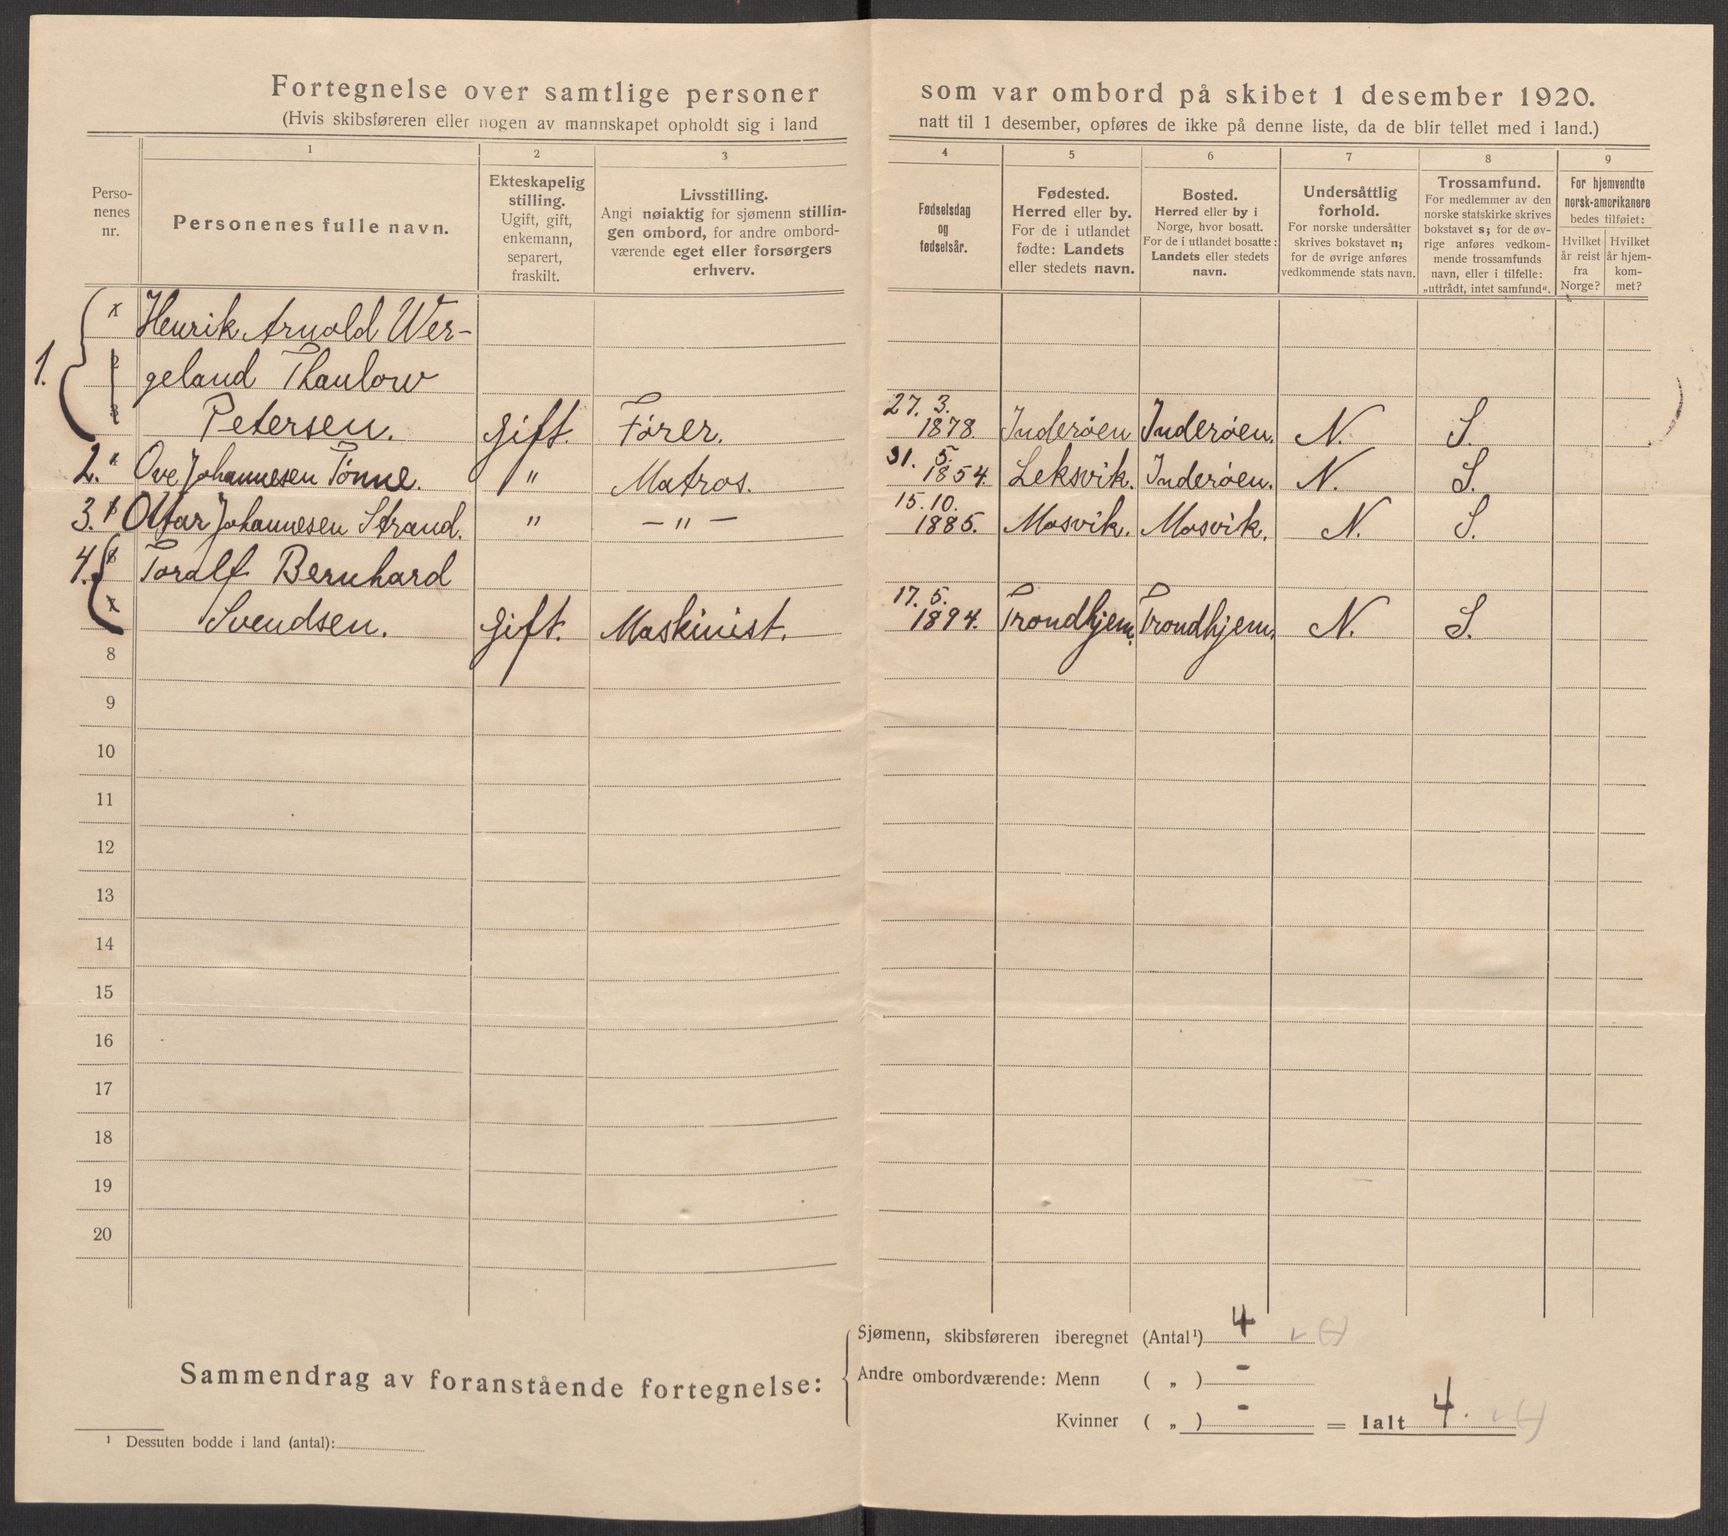 Fortegnelse over samtlige personer som var ombord på skibet 1 desember 1920.
(Hvis skibsføreren eller nogen av mannskapet opholdt sig i land natt til 1 desember, opføres de ikke på denne liste, da de blir tellet med i land.)
1 2 3 4 5 6 7 8 9
Perso-
nenes
nr.
Personenes fulle navn.
Ekteskapelig
stilling.
Ugift, gift,
enkemann,
separert,
fraskilt.
Livsstilling.
Angi nøiaktig for sjømenn stillin-
gen ombord, for andre ombord-
værende eget eller forsørgers
erhverv.
Fødselsdag
og
fødselsår.
Fødested.
Herred eller by.
For de i utlandet
fødte: Landets
eller stedets navn.
Bosted.
Herred eller by i
Norge, hvor bosatt.
For de i utlandet bosatte:
Landets eller stedets
navn.
Undersåttlig
forhold.
For norske undersåtter
skrives bokstavet n;
for de øvrige anføres
vedkommende stats navn.
Trossamfund.
For medlemmer av den
norske statskirke skrives
bokstavet s; for de øv-
rige anføres vedkom-
mende trossamfunds
navn, eller i tilfelle:
„uttrådt, intet samfund“.
For hjemvendte
norsk-amerikanere
bedes tilføiet:
Hvilket
år reist
fra
Norge?
Hvilket
år hjem-
kom-
met?
1. Henrik Arnold Wer-
geland Thaulow
Petersen. Gift. Fører. 27. 3. 1878. Inderøen Inderøen. N. S.
2. Ove Johannesen Tønne. " Matros. 31. 5. 1854. Leksvik. Inderøen. N. S.
3. Ottar Johannesen Strand. " — " — 15. 10. 1885. Mosvik. Mosvik. N. S.
4. Toralf Bernhard
Svendsen. Gift. Maskinist. 17. 5. 1894. Trondhjem. Trondhjem. N. S.
8
9
10
11
12
13
14
15
16
17
18
19
20
Sammendrag av foranstående fortegnelse:
Sjømenn, skibsføreren iberegnet (Antal¹) 4
Andre ombordværende: Menn ( „ ) -
Kvinner ( „ ) - = Ialt 4.
¹ Dessuten bodde i land (antal):